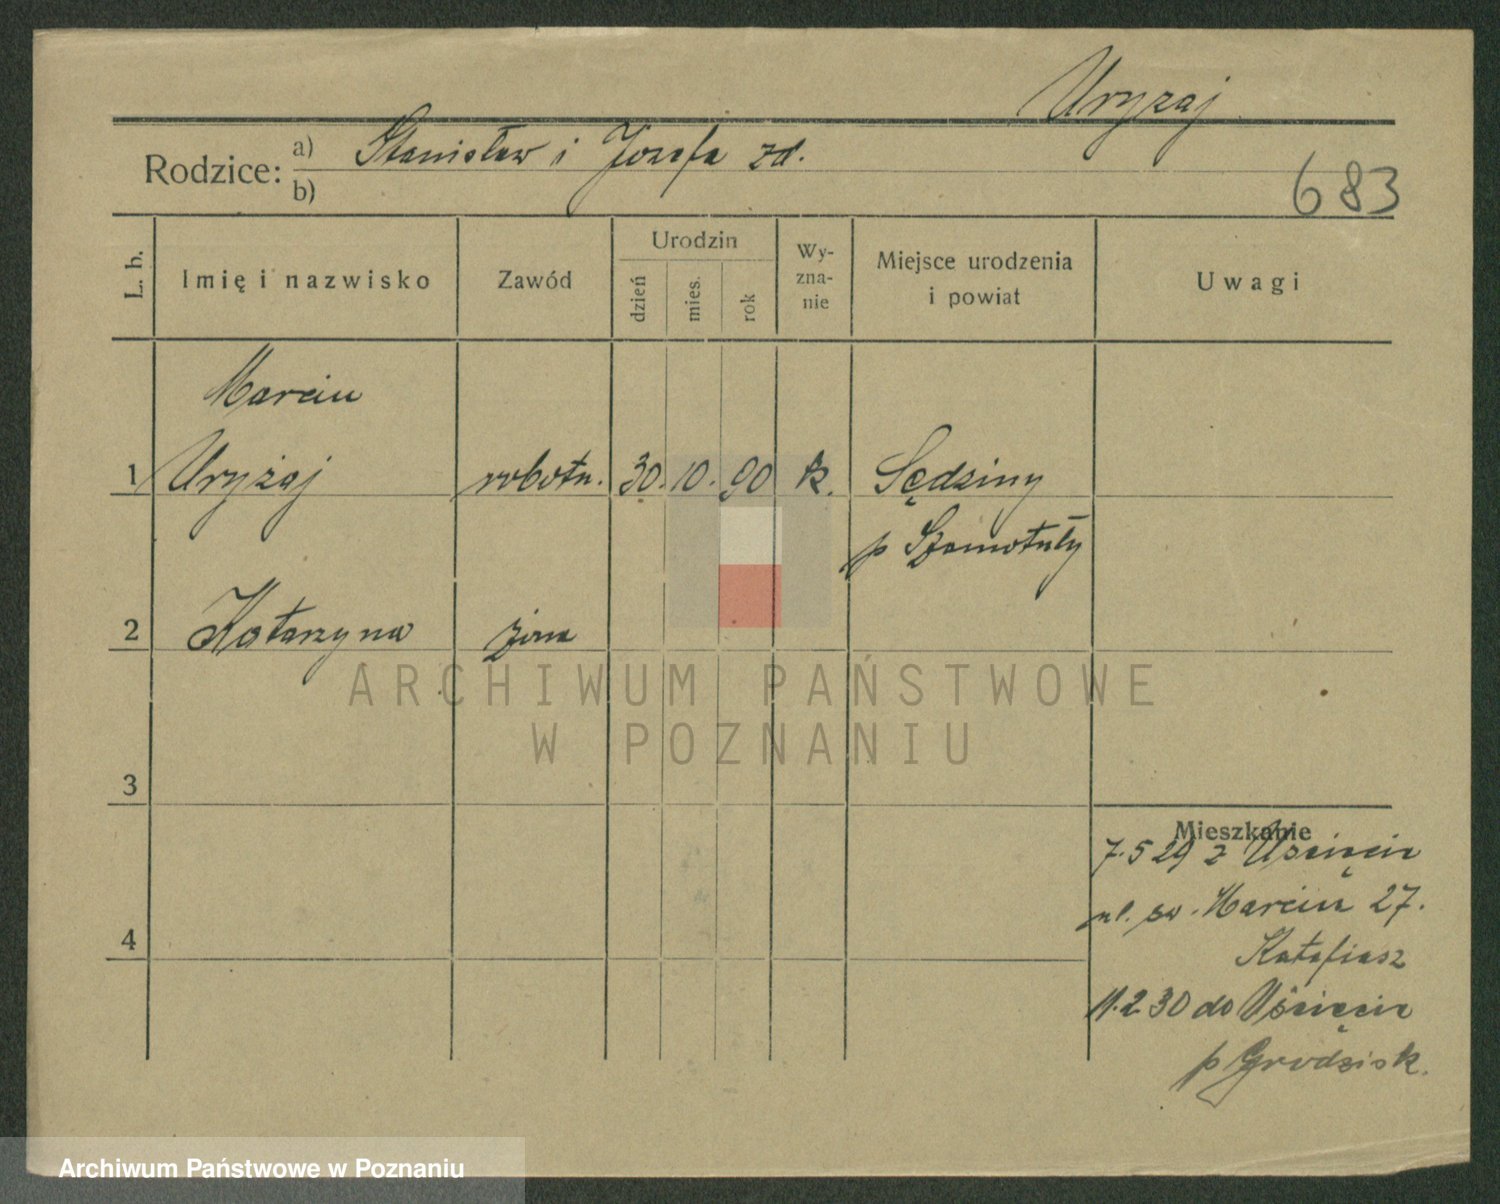 Uryzaj
Rodzice: a) Stanisław i Jozefa zd.
b)
683
L. b.
Imię i nazwisko
Zawód
Urodzin
dzień
mies.
rok
Wy-
zna-
nie
Miejsce urodzenia
i powiat
Uwagi
Marcin
1 Uryżaj robotn. 30. 10. 90 k. Sędziny
p Szamotuły
2 Katarzyna żona
3
4
Mieszkanie
7.5 29 z Uścięcic
ul. sw. Marcin 27.
Katafiasz
11.2.30 do Uścięcic
p Grodzisk.
ARCHIWUM PAŃSTWOWE
W POZNANIU
Archiwum Państwowe w Poznaniu